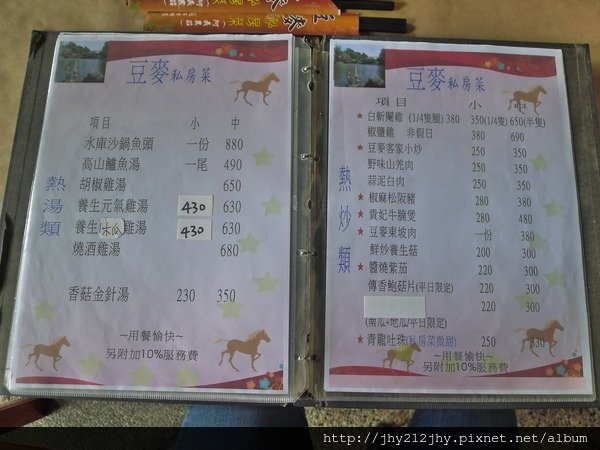 豆麥 私房菜
豆麥私房菜
項目 小 中
水庫沙鍋魚頭 一份 880
高山鱸魚湯 一尾 490
胡椒雞湯 650
養生元氣雞湯 430 630
養生 雞湯 430 630
燒酒雞湯 680
香菇金針湯 230 350
熱湯類
~用餐愉快~
另附加10%服務費
豆麥私房菜
項目 小 中
★白斬閹雞 (1/4隻腿) 380 350(1/4隻) 650(半隻)
椒鹽雞 非假日 380 690
★豆麥客家小炒 250 350
野味山羌肉 250 350
蒜泥白肉 250 350
★椒麻松阪豬 280 380
★貴妃牛腩煲 280 480
★豆麥東坡肉 一份 380
鮮炒養生菇 200 300
★醬燒紫茄 220 300
傳香鮑菇片(平日限定) 220 300
220 300
(南瓜+地瓜/平日限定)
★青龍吐珠(私房菜微甜) 250 330
熱炒類
~用餐愉快~
另附加10%服務費
http://jhy212jhy.pixnet.net/album